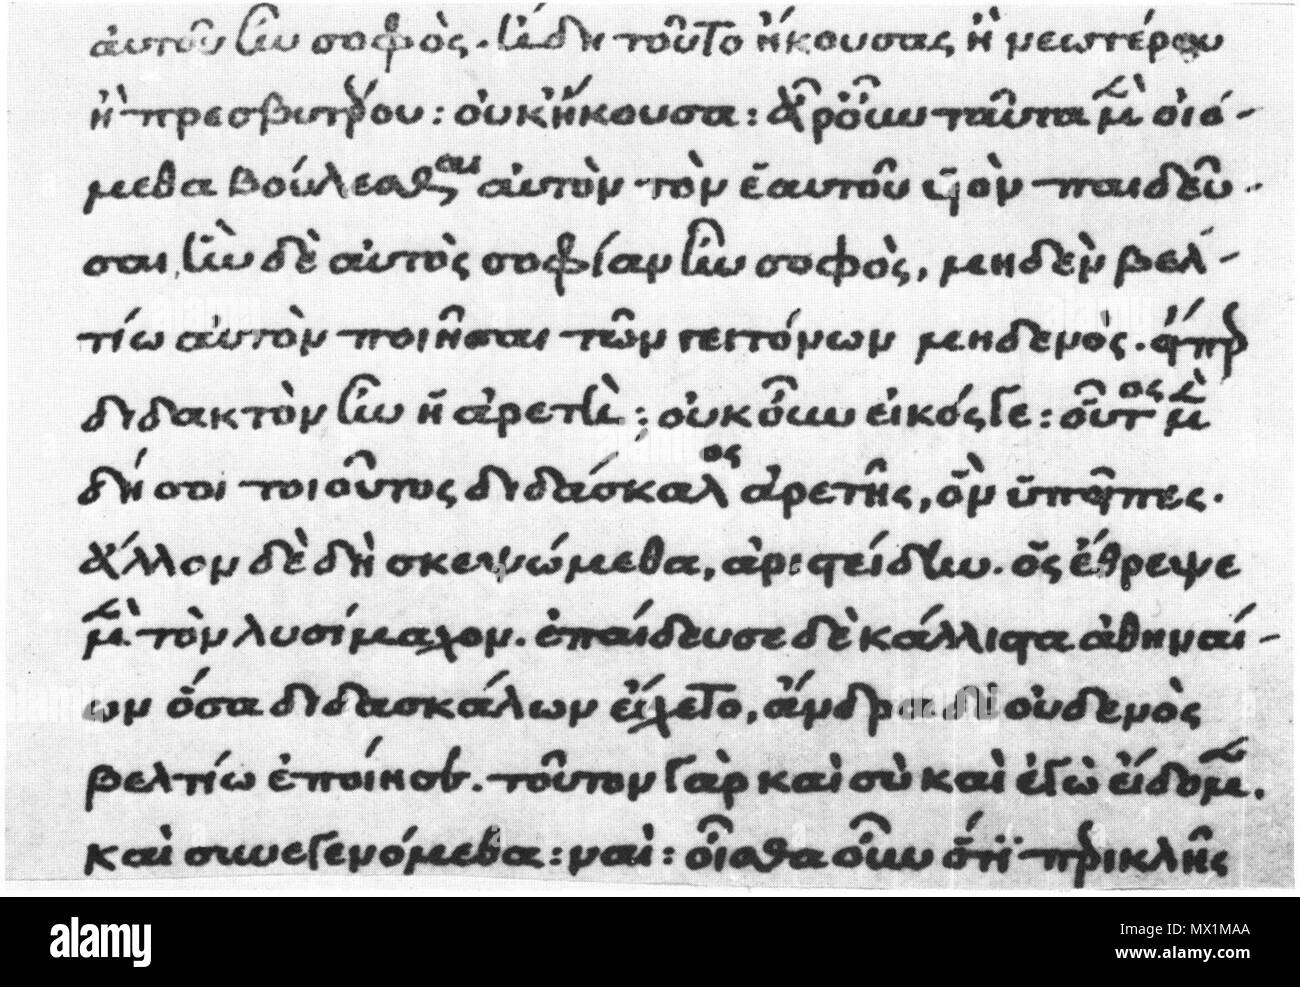 αὐτοῦ ἦν σοφὸς. ἤδη τοῦτο ἤκουσας ἢ νεωτέρου
ἢ πρεσβυτέρου : οὐκ ἤκουσα : ἆρ' οὖν ταῦτα μὲν οἰό-
μεθα βούλεσθαι αὐτὸν τὸν ἑαυτοῦ ὑὸν παιδεῦ-
σαι, ἣν δὲ αὐτὸς σοφίαν ἦν σοφὸς, μηδὲν βελ-
τίω αὐτὸν ποιῆσαι τῶν γειτόνων μηδενὸς. εἴπερ
διδακτὸν ἦν ἡ ἀρετὴ : οὐκοῦν εἰκός γε : οὗτος μὲν
δή σοι τοιοῦτος διδάσκαλος ἀρετῆς, ὃν ὑπεῖπες.
ἄλλον δὲ δὴ σκεψώμεθα, ἀριστείδην. ὃς ἔθρεψε
μὲν τὸν λυσίμαχον. ἐπαίδευσε δὲ κάλλιστα ἀθηναί-
ων ὅσα διδασκάλων εἴχετο, ἄνδρα δὲ οὐδενὸς
βελτίω ἐποίησεν. τοῦτον γὰρ καὶ σὺ καὶ ἐγὼ εἴδομεν.
καὶ συνεγενόμεθα : ναὶ : οἶσθα οὖν ὅτι περικλῆς
alamy
Image ID: MX1MAA
www.alamy.com